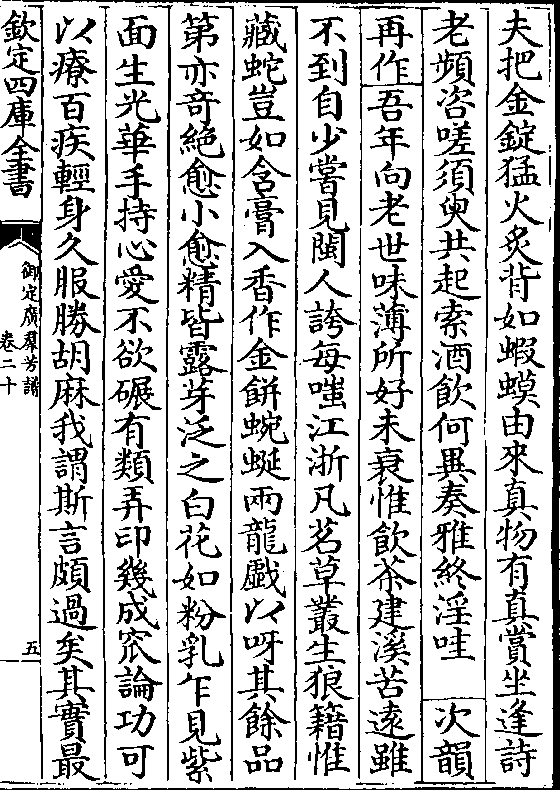 夫把金錠猛火炙背如蝦蟆由來真物有真賞坐逢詩
老頻咨嗟須臾共起索酒飲何異奏雅終淫哇　次韻
再作吾年向老世味薄所好未衰惟飲茶建溪苦遠雖
不到自少嘗見閩人誇每嗤江浙凡茗草叢生狼籍惟
藏蛇豈如含膏入香作金餅蜿蜒兩龍戲以呀其餘品
第亦奇絶愈小愈精皆露芽泛之白花如粉乳乍見紫
面生光華手持心愛不欲碾有類弄印幾成窊論功可
以療百疾輕身久服勝胡麻我謂斯言頗過矣其實最
欽定四庫全書
御定廣羣芳譜
卷二十
五